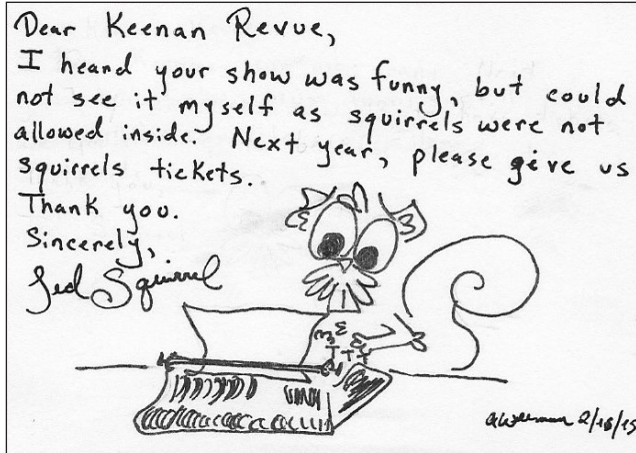 Dear Keenan Revue,
I heard your show was funny, but could
not see it myself as squirrels were not
allowed inside. Next year, please give us
squirrels tickets.
Thank you.
Sincerely,
Squirrel
2/16/15